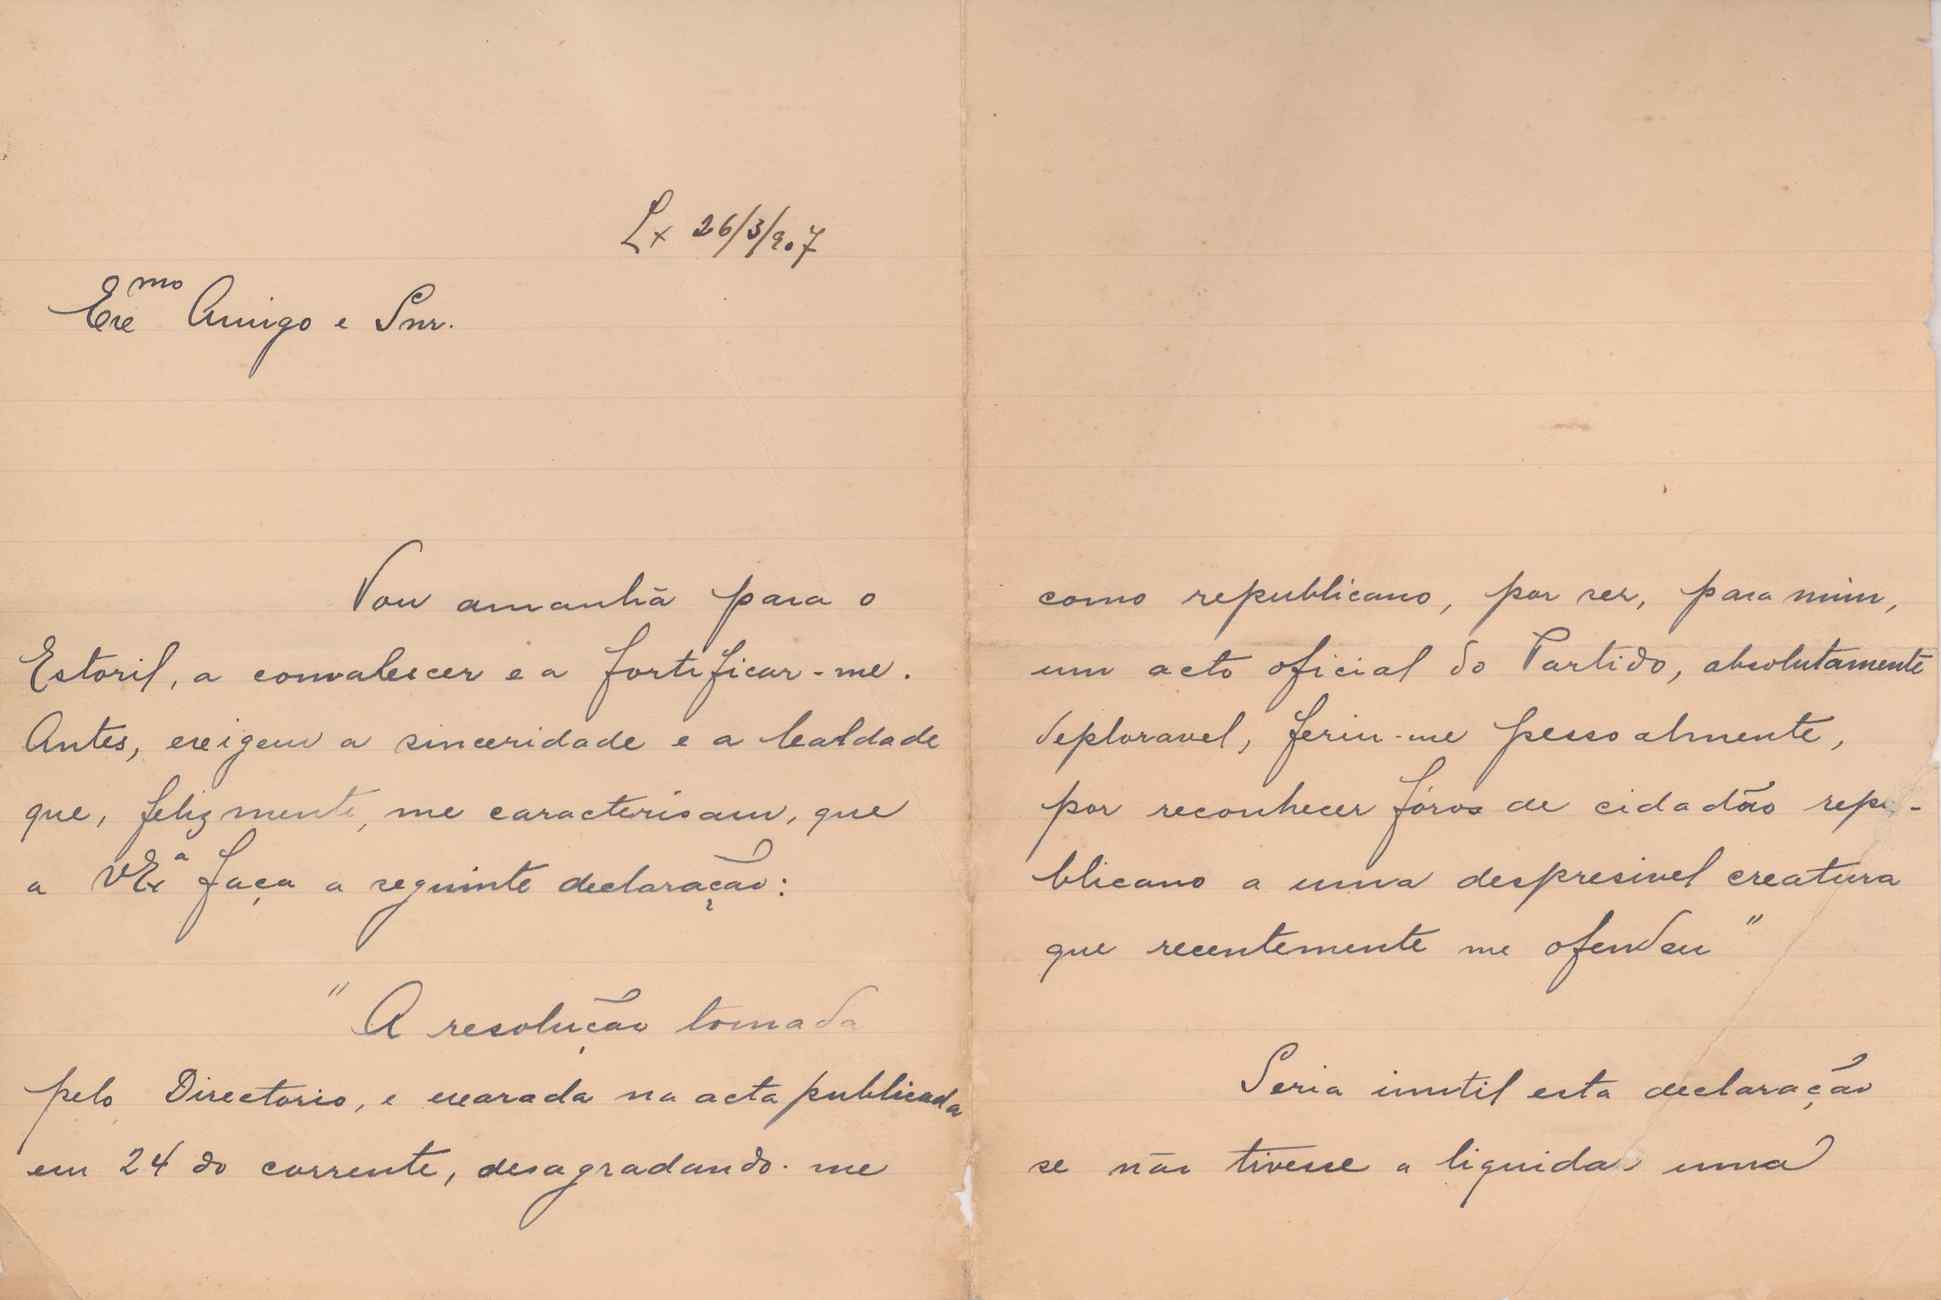 Lx 26/3/907
Exmo Amigo e Snr.
Vou amanhã para o
Estoril, a convalescer e a fortificar-me.
Antes, exigem a sinceridade e a lealdade
que, felizmente, me caracterisam, que
a VExª faça a seguinte declaração:
"A resolução tomada
pelo Directorio, e exarada na acta publicada
em 24 do corrente, desagradando-me
como republicano, por ser, para mim,
um acto oficial do Partido, absolutamente
deploravel, feriu-me pessoalmente,
por reconhecer fóros de cidadão repu-
blicano a uma despresivel creatura
que recentemente me ofendeu"
Seria inutil esta declaração
se não tivesse a liquidar uma